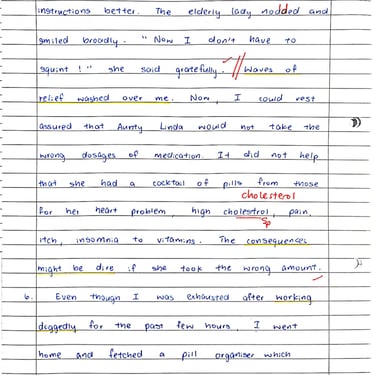 instructions better. The elderly lady nodded and
smiled broadly. "Now I don't have to
squint!" she said gratefully. // Waves of
relief washed over me. Now, I could rest
assured that Aunty Linda would not take the
wrong dosages of medication. It did not help
that she had a cocktail of pills from those
cholesterol
for her heart problem, high cholestrol, pain,
Sp
itch, insomnia to vitamins. The consequences
might be dire if she took the wrong amount.
6. Even though I was exhausted after working
doggedly for the past few hours, I went
home and fetched a pill organiser which